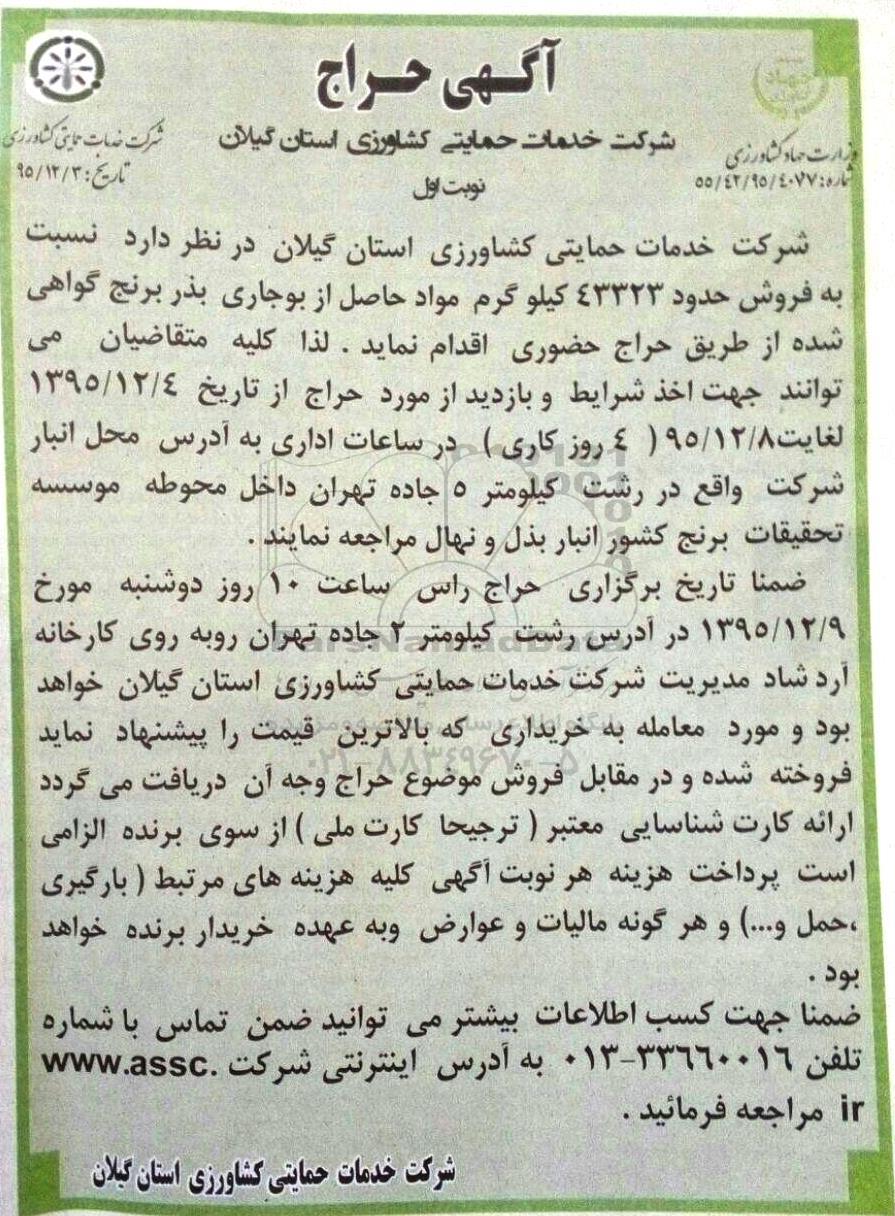 آگهی حراج
شرکت خدمات حمایتی کشاورزی استان گیلان
نوبت اول
جهاد
وزارت جهاد کشاورزی
شماره: ۵۵/۴۲/۹۵/۴۰۷۷
شرکت خدمات حمایتی کشاورزی
تاریخ: ۹۵/۱۲/۳
شرکت خدمات حمایتی کشاورزی استان گیلان در نظر دارد نسبت
به فروش حدود ٤٣٣٢٣ کیلو گرم مواد حاصل از بوجاری بذر برنج گواهی
شده از طریق حراج حضوری اقدام نماید . لذا کلیه متقاضیان می
توانند جهت اخذ شرایط و بازدید از مورد حراج از تاریخ ١٣٩٥/١٢/٤
لغایت٩٥/١٢/٨ ( ٤ روز کاری ) در ساعات اداری به آدرس محل انبار
شرکت واقع در رشت کیلومتر ٥ جاده تهران داخل محوطه موسسه
تحقیقات برنج کشور انبار بذل و نهال مراجعه نمایند .
ضمنا تاریخ برگزاری حراج راس ساعت ١٠ روز دوشنبه مورخ
١٣٩٥/١٢/٩ در آدرس رشت کیلومتر ٢ جاده تهران روبه روی کارخانه
آرد شاد مدیریت شرکت خدمات حمایتی کشاورزی استان گیلان خواهد
بود و مورد معامله به خریداری که بالاترین قیمت را پیشنهاد نماید
فروخته شده و در مقابل فروش موضوع حراج وجه آن دریافت می گردد
ارائه کارت شناسایی معتبر ( ترجیحا کارت ملی ) از سوی برنده الزامی
است پرداخت هزینه هر نوبت آگهی کلیه هزینه های مرتبط ( بارگیری
،حمل و...) و هر گونه مالیات و عوارض وبه عهده خریدار برنده خواهد
بود .
ضمنا جهت کسب اطلاعات بیشتر می توانید ضمن تماس با شماره
تلفن ٣٣٦٦٠٠١٦-٠١٣ به آدرس اینترنتی شرکت www.assc.
ir مراجعه فرمائید .
شرکت خدمات حمایتی کشاورزی استان گیلان
ParsNamadData
۰۲۱-۸۸۳۴۹۶۷۰-۵